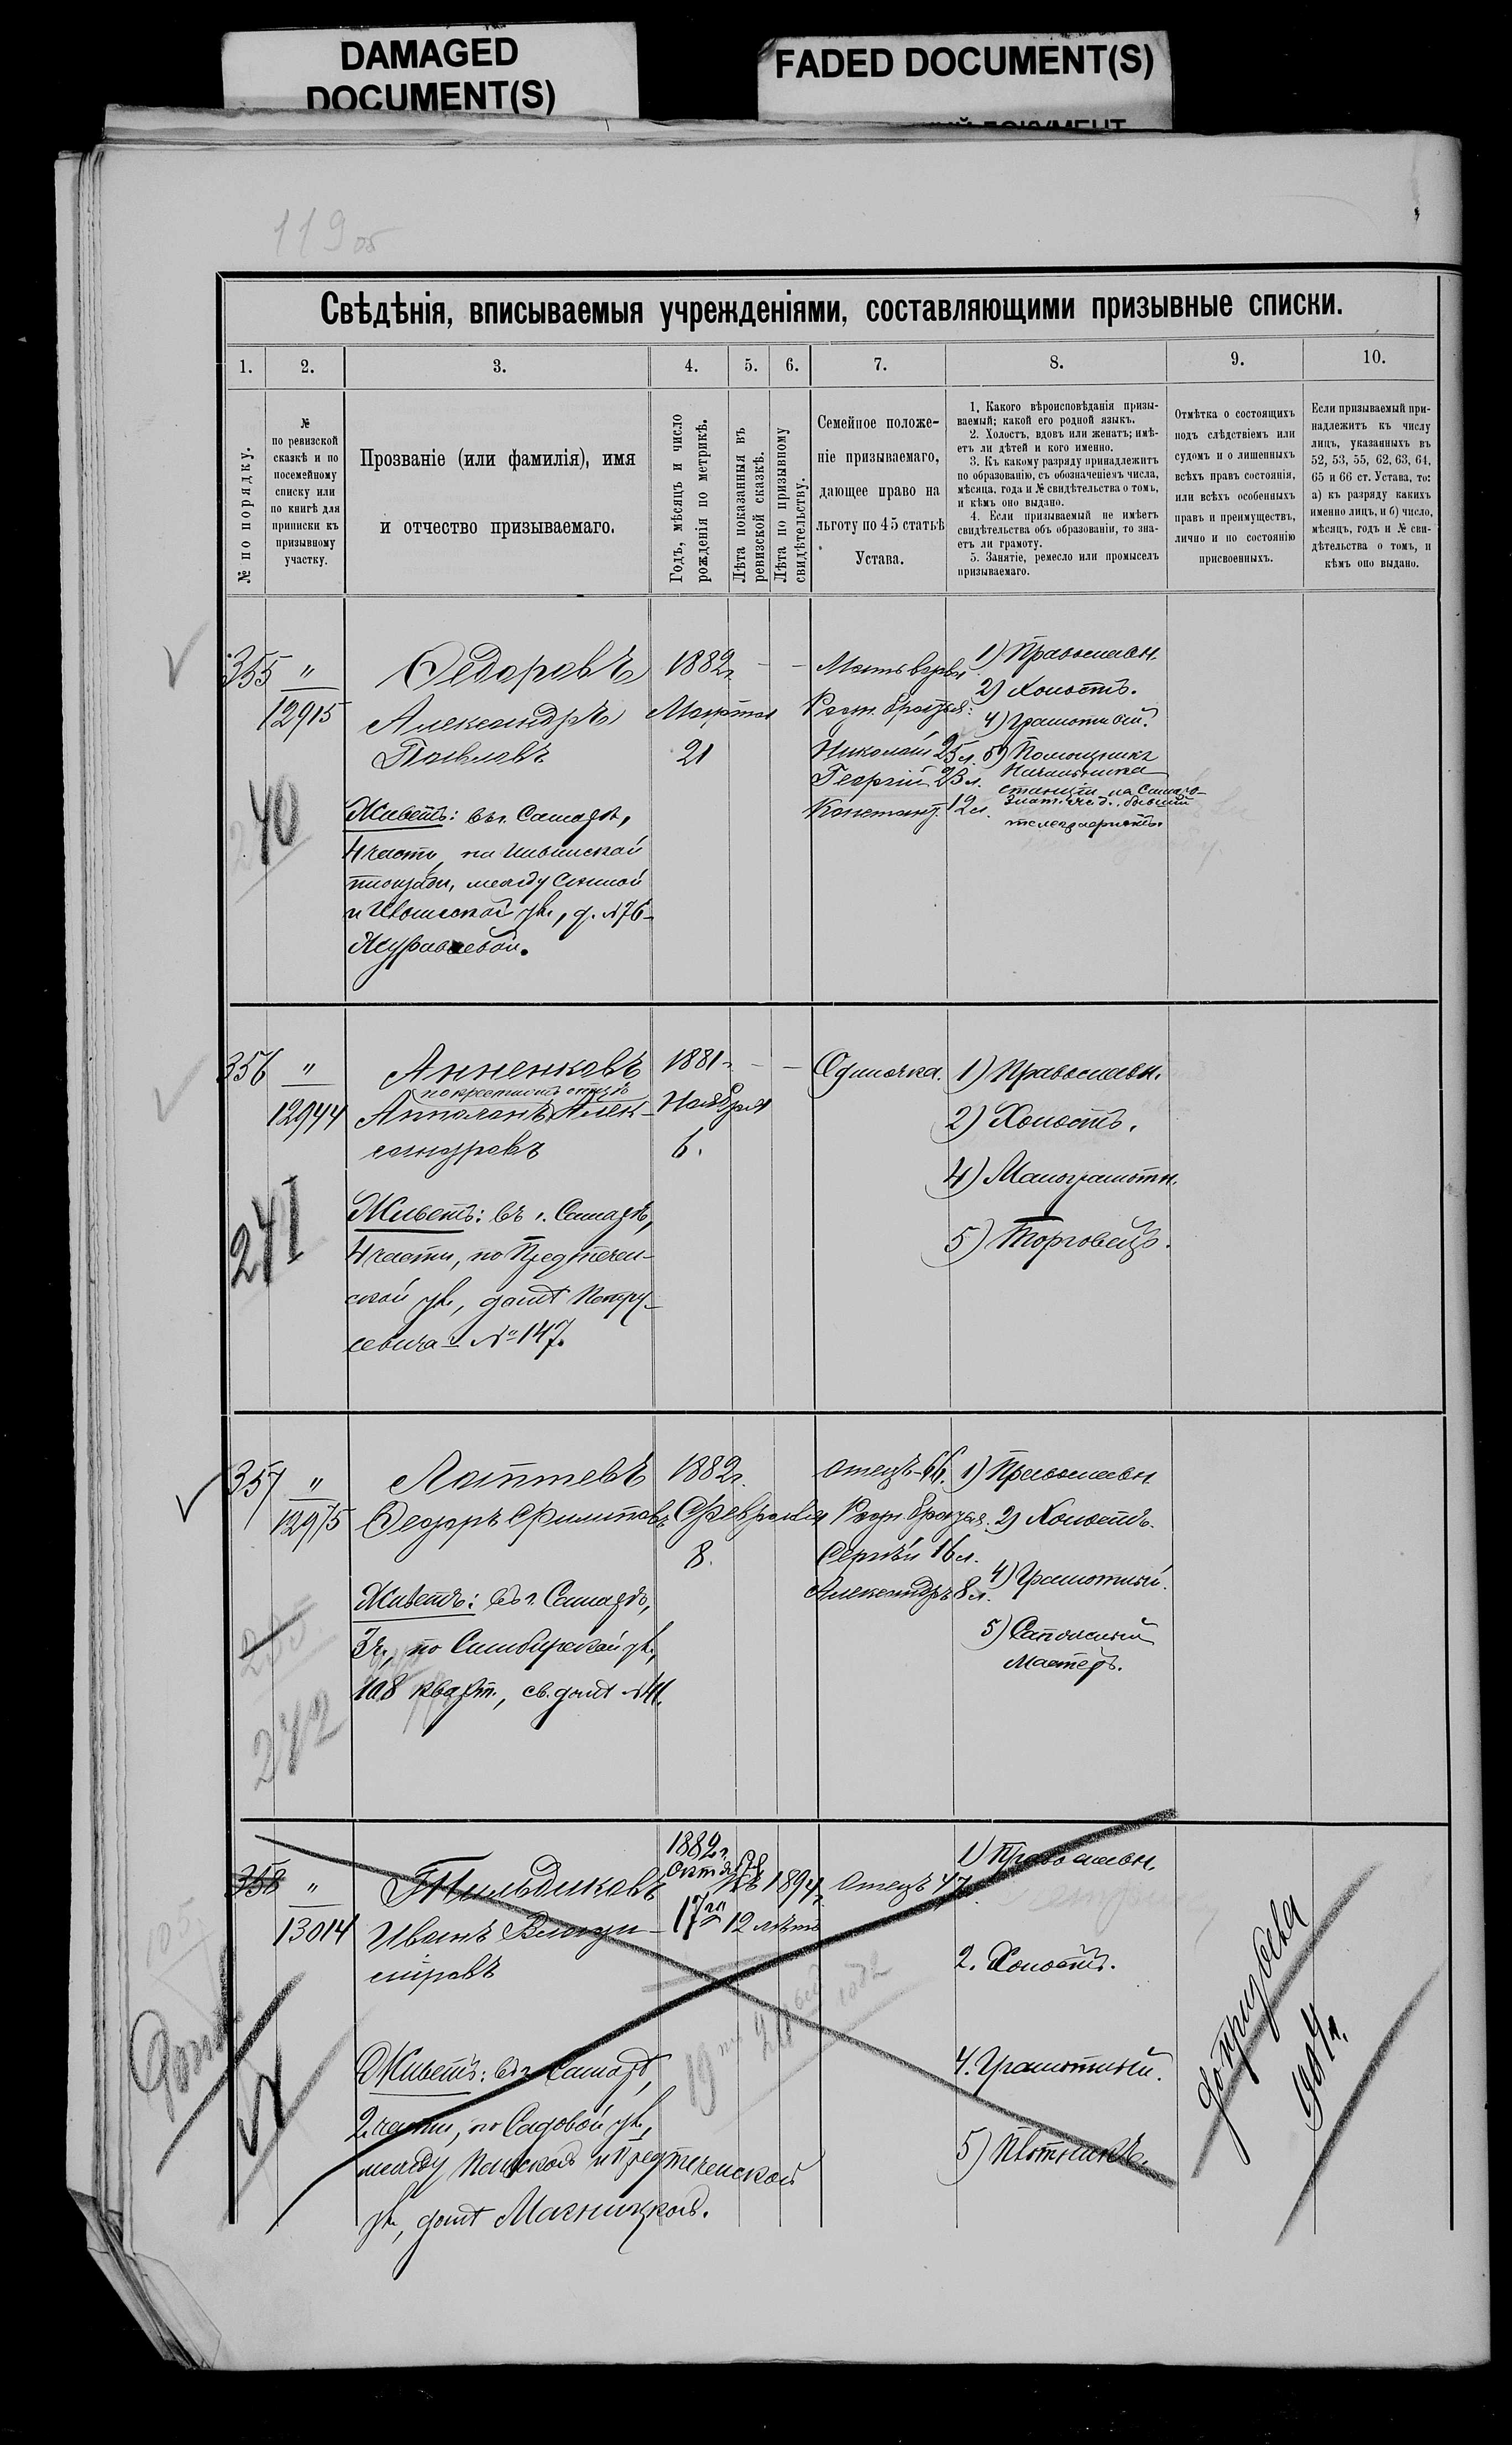 DAMAGED
DOCUMENT(S)
FADED DOCUMENT(S)
119 об
Свѣдѣнія, вписываемыя учрежденіями, составляющими призывные списки.
1. 2. 3. 4. 5. 6. 7. 8. 9. 10.
№ по порядку.
№
по ревизской
сказкѣ и по
посемейному
списку или
по книгѣ для
приписки къ
призывному
участку.
Прозваніе (или фамилія), имя
и отчество призываемаго.
Годъ, мѣсяцъ и число
рожденія по метрикѣ.
Лѣта показанныя въ
ревизской сказкѣ.
Лѣта по призывному
свидѣтельству.
Семейное положе-
ніе призываемаго,
дающее право на
льготу по 45 статьѣ
Устава.
1. Какого вѣроисповѣданія призы-
ваемый; какой его родной языкъ.
2. Холостъ, вдовъ или женатъ; имѣ-
етъ ли дѣтей и кого именно.
3. Къ какому разряду принадлежитъ
по образованію, съ обозначеніемъ числа,
мѣсяца, года и № свидѣтельства о томъ,
и кѣмъ оно выдано.
4. Если призываемый не имѣетъ
свидѣтельства объ образованіи, то зна-
етъ ли грамоту.
5. Занятіе, ремесло или промыселъ
призываемаго.
Отмѣтка о состоящихъ
подъ слѣдствіемъ или
судомъ и о лишенныхъ
всѣхъ правъ состоянія,
или всѣхъ особенныхъ
правъ и преимуществъ,
лично и по состоянію
присвоенныхъ.
Если призываемый при-
надлежитъ къ числу
лицъ, указанныхъ въ
52, 53, 55, 62, 63, 64,
65 и 66 ст. Устава, то:
а) къ разряду какихъ
именно лицъ, и б) число,
мѣсяцъ, годъ и № сви-
дѣтельства о томъ, и
кѣмъ оно выдано.
355 "
12915
240
Ѳедоровъ
Александръ
Павловъ
Живетъ: въ г. Самарѣ,
4 части, на Ильинской
площади, между Сѣнной
и Ильинской ул., д. №76
Журавлевой.
1882 г.
Марта
21
Мать вдова
Родн. братья:
Николай 25 л.
Георгій 23 л.
Констант. 12 л.
1) Православн.
2) Холостъ.
4) Грамотный.
5) Помощникъ
Начальника
станціи на Самаро-
Злат. ж. д., бывшій
телеграфистъ.
356 "
12944
241
Анненковъ
по крестному отцу
Апполонъ Алек-
сандровъ
Живетъ: въ г. Самарѣ,
4 части, по Предтечен-
ской ул., домъ
севича №147.
1881 г.
Ноября
6.
Одиночка.
1) Православн.
2) Холостъ.
4) Малограмотн.
5) Торговецъ.
357 "
12975
242
Лаптевъ
Ѳедоръ Филиповъ
Живетъ: въ г. Самарѣ,
3 ч., по Симбирской ул.,
108 кварт., св. домъ №41.
1882 г.
Февраля
8.
Отецъ 66.
Родн. братья:
Сергѣй 16 л.
Александръ 8 л.
1) Православн
2) Холостъ.
4) Грамотный.
5) Сапожный
Мастеръ.
358 "
13014
Тильдиковъ
Иванъ Влади-
міровъ
Живетъ: въ г. Самарѣ,
2 части, по Садовой ул.,
между Панской и Предтеченской
ул., домъ Магницкой.
1882 г.
Октября
17го
Въ 1894 г.
12 лѣтъ
Отецъ 47
1) Православн.
2. Холостъ.
4. Грамотный.
5) Плотникъ.
до призыва
1904 г.